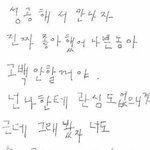 성공해서 만나자
진짜 좋아했어 나쁜놈아
고백 안할꺼야.
넌 나한테 관심도 없으니까
근데 그래봤자 너도